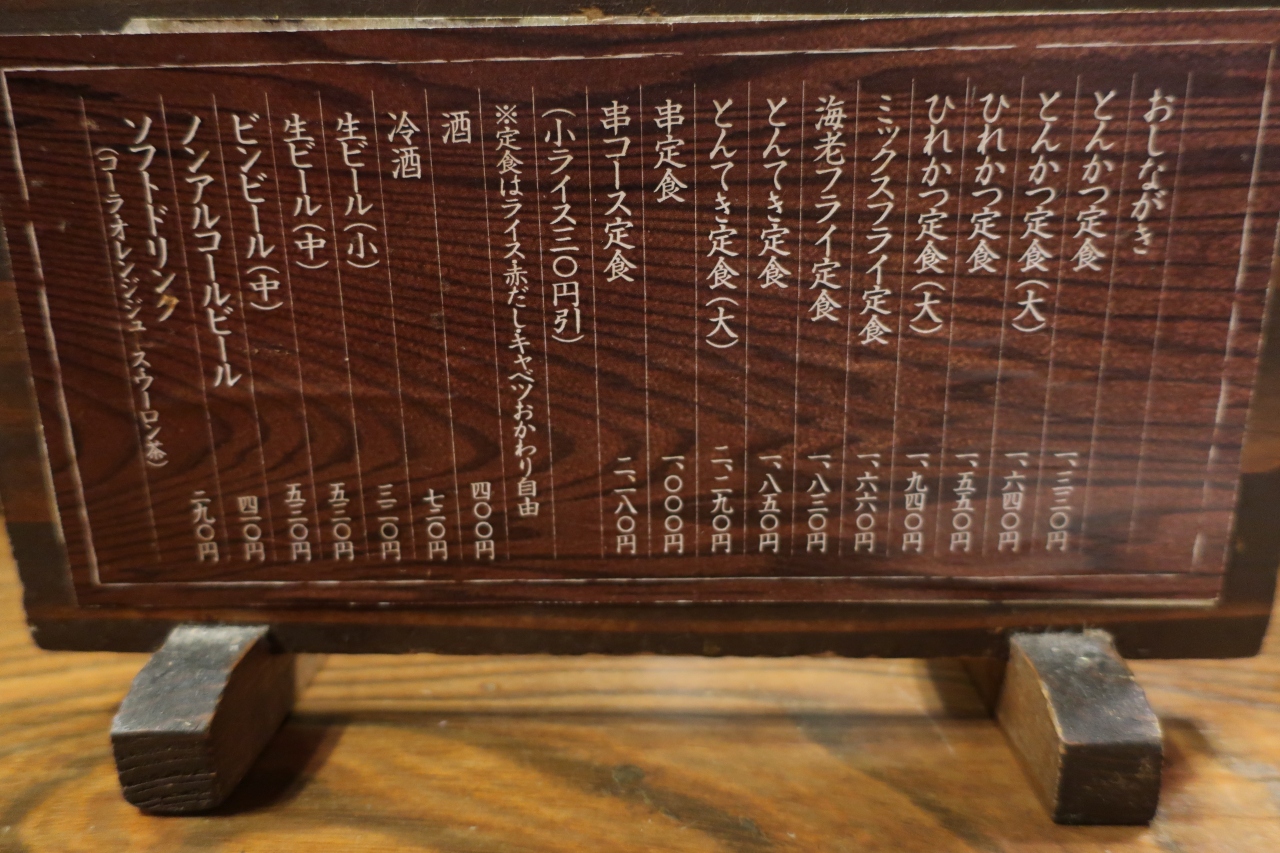 おしながき
とんかつ定食 一、三三〇円
とんかつ定食(大) 一、六四〇円
ひれかつ定食 一、五五〇円
ひれかつ定食(大) 一、九四〇円
ミックスフライ定食 一、六六〇円
海老フライ定食 一、八三〇円
とんてき定食 一、八五〇円
とんてき定食(大) 二、二九〇円
串定食 一、〇〇〇円
串コース定食 二、二八〇円
(小ライス三〇円引)
※定食はライス・赤だし・キャベツおかわり自由
酒 四〇〇円
冷酒 七二〇円
生ビール(小) 三二〇円
生ビール(中) 五二〇円
ビンビール(中) 五二〇円
ノンアルコールビール 四一〇円
ソフトドリンク 二九〇円
(コーラ・オレンジジュース・ウーロン茶)